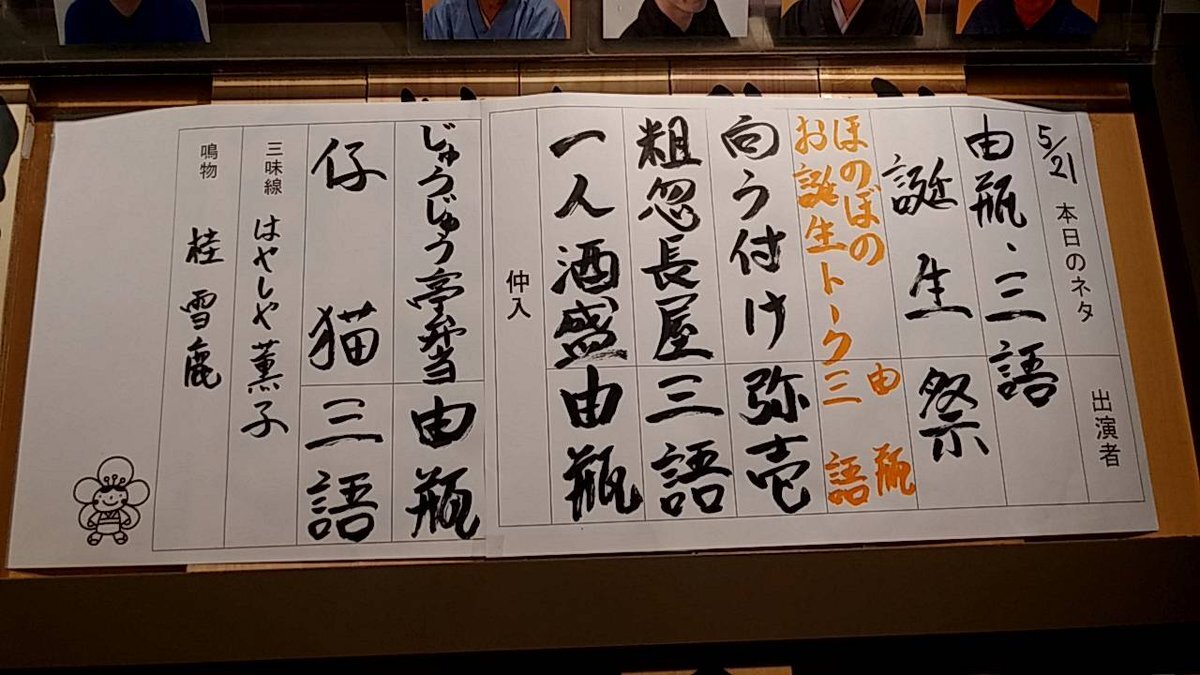 5/21 本日のネタ 出演者
由瓶、三語
誕生祭
ほのぼの 由瓶
お誕生トーク 三語
向う付け 弥壱
粗忽長屋 三語
一人酒盛 由瓶
仲入
じゅうじゅう亭弁当 由瓶
仔猫 三語
三味線 はやしや薫子
鳴物 桂雪鹿